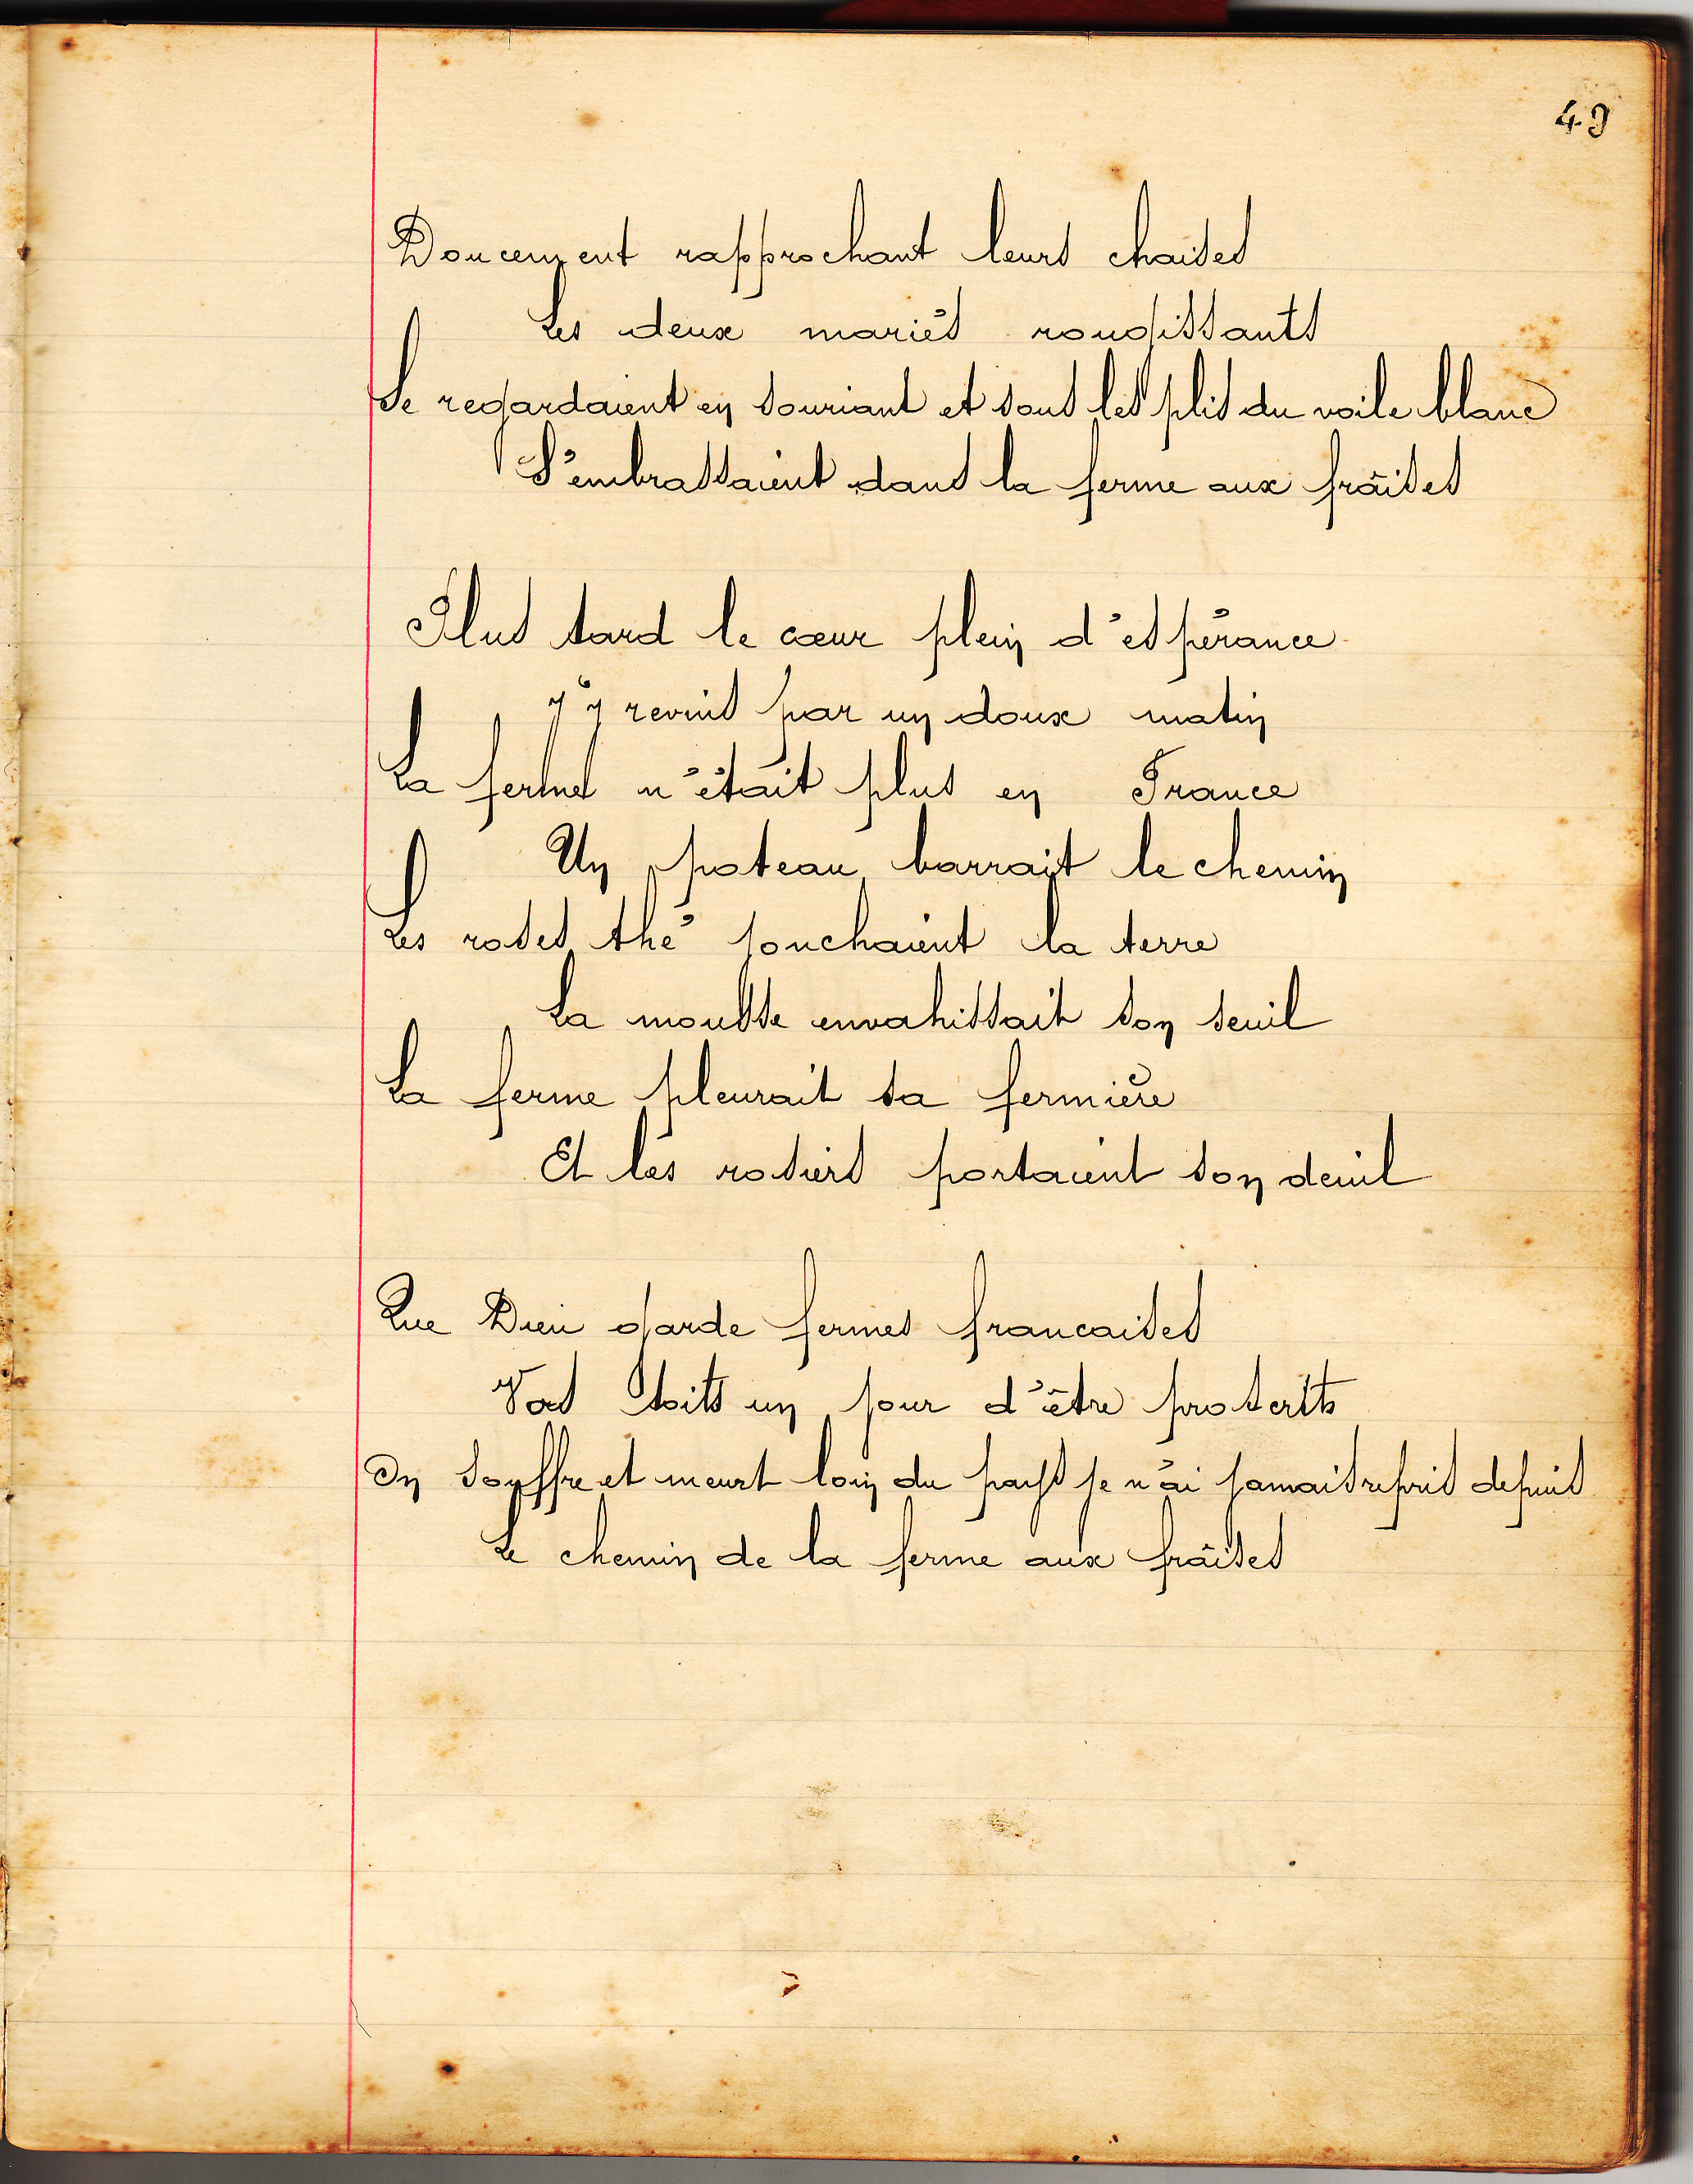 49
Doucement rapprochant leurs chaises
Les deux mariés rougissants
Se regardaient en souriant et sous les plis du voile blanc
S'embrassaient dans la ferme aux fraises
Plus tard le cœur plein d'espérance
J'y revins par un doux matin
La ferme n'était plus en France
Un poteau barrait le chemin
Les roses thé jonchaient la terre
La mousse envahissait son seuil
La ferme pleurait sa fermière
Et les rosiers portaient son deuil
Que Dieu garde fermes francaises
Vos toits un jour d'être proscrits
On souffre et meurt loin du pays je n'ai jamais repris depuis
Le chemin de la ferme aux fraises